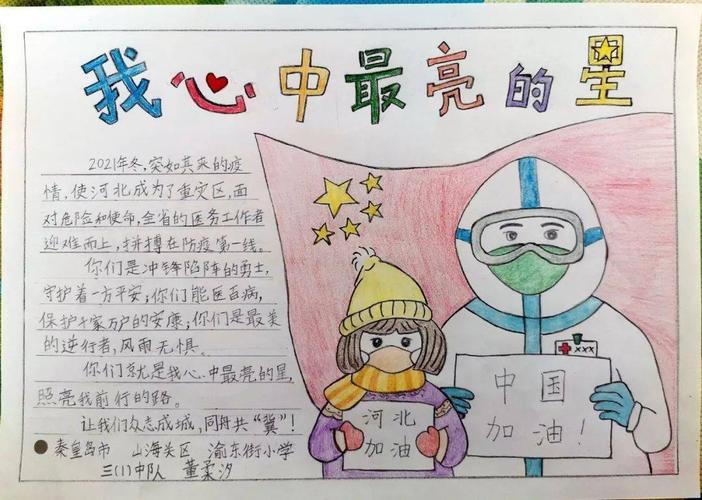 我心中最亮的星
2021年冬，突如其来的疫
情，使河北成为了重灾区，面
对危险和使命，全省的医务工作者
迎难而上，拼搏在防疫第一线。
你们是冲锋陷阵的勇士，
守护着一方平安；你们能医百病，
保护千家万户的安康；你们是最美
的逆行者，风雨无惧。
你们就是我心中最亮的星，
照亮我前行的路。
让我们众志成城，同舟共“冀”！
秦皇岛市 山海关区 渝东街小学
三(1)中队 董柔汐
河北
加油
中国
加油！
xxx